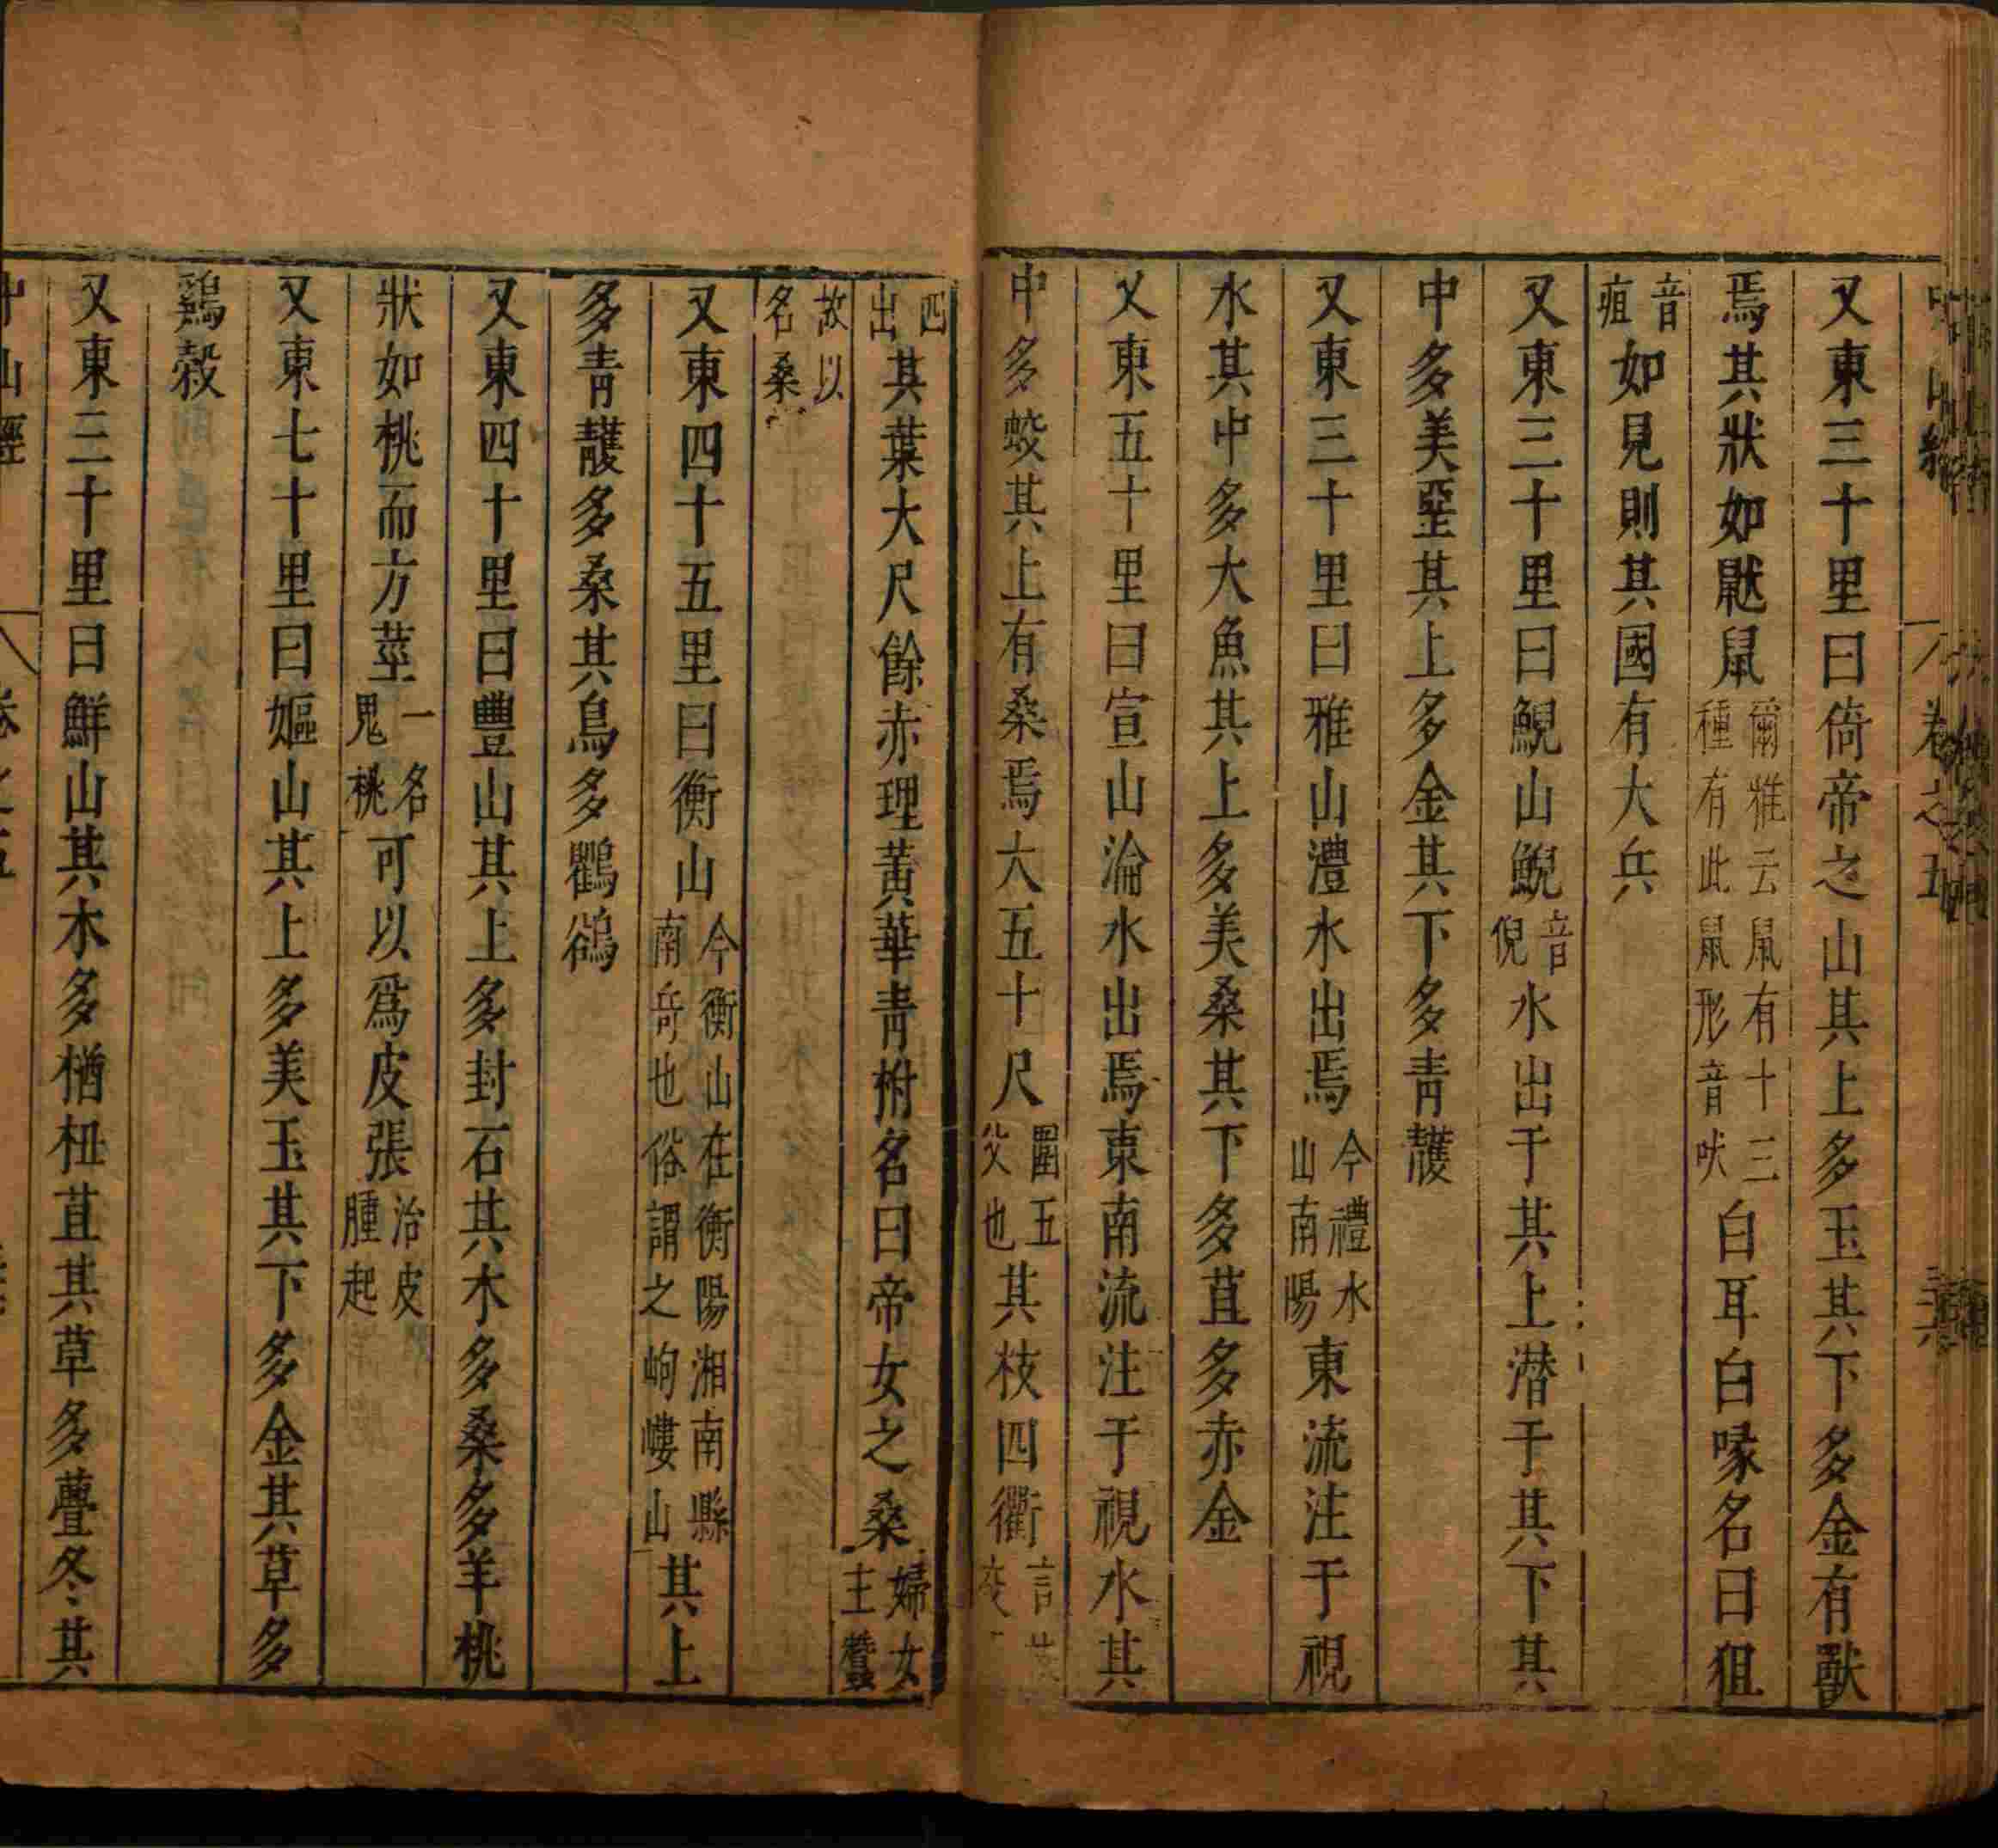 又東三十里曰倚帝之山其上多玉其下多金有獸
焉其狀如鼣鼠爾雅云鼠有十三種有此鼠形音吠白耳白喙名曰狙
音疽如見則其國有大兵
又東三十里曰鯢山鯢音倪水出于其上潜于其下其
中多美堊其上多金其下多青雘
又東三十里曰雅山澧水出焉今禮水山南陽東流注于視
水其中多大魚其上多美桑其下多苴多赤金
又東五十里曰宣山淪水出焉東南流注于視水其
中多蛟其上有桑焉大五十尺圍五丈也其枝四衢言交
四出其葉大尺餘赤理黃華青柎名曰帝女之桑婦女主蠶
故以名桑
又東四十五里曰衡山今衡山在衡陽湘南縣南岳也俗謂之岣嶁山其上
多青雘多桑其鳥多鸜鵒
又東四十里曰豐山其上多封石其木多桑多羊桃
狀如桃而方莖一名鬼桃可以爲皮張治皮腫起
又東七十里曰嫗山其上多美玉其下多金其草多
鷄穀
又東三十里曰鮮山其木多楢杻苴其草多虋冬其
中山經 卷之五